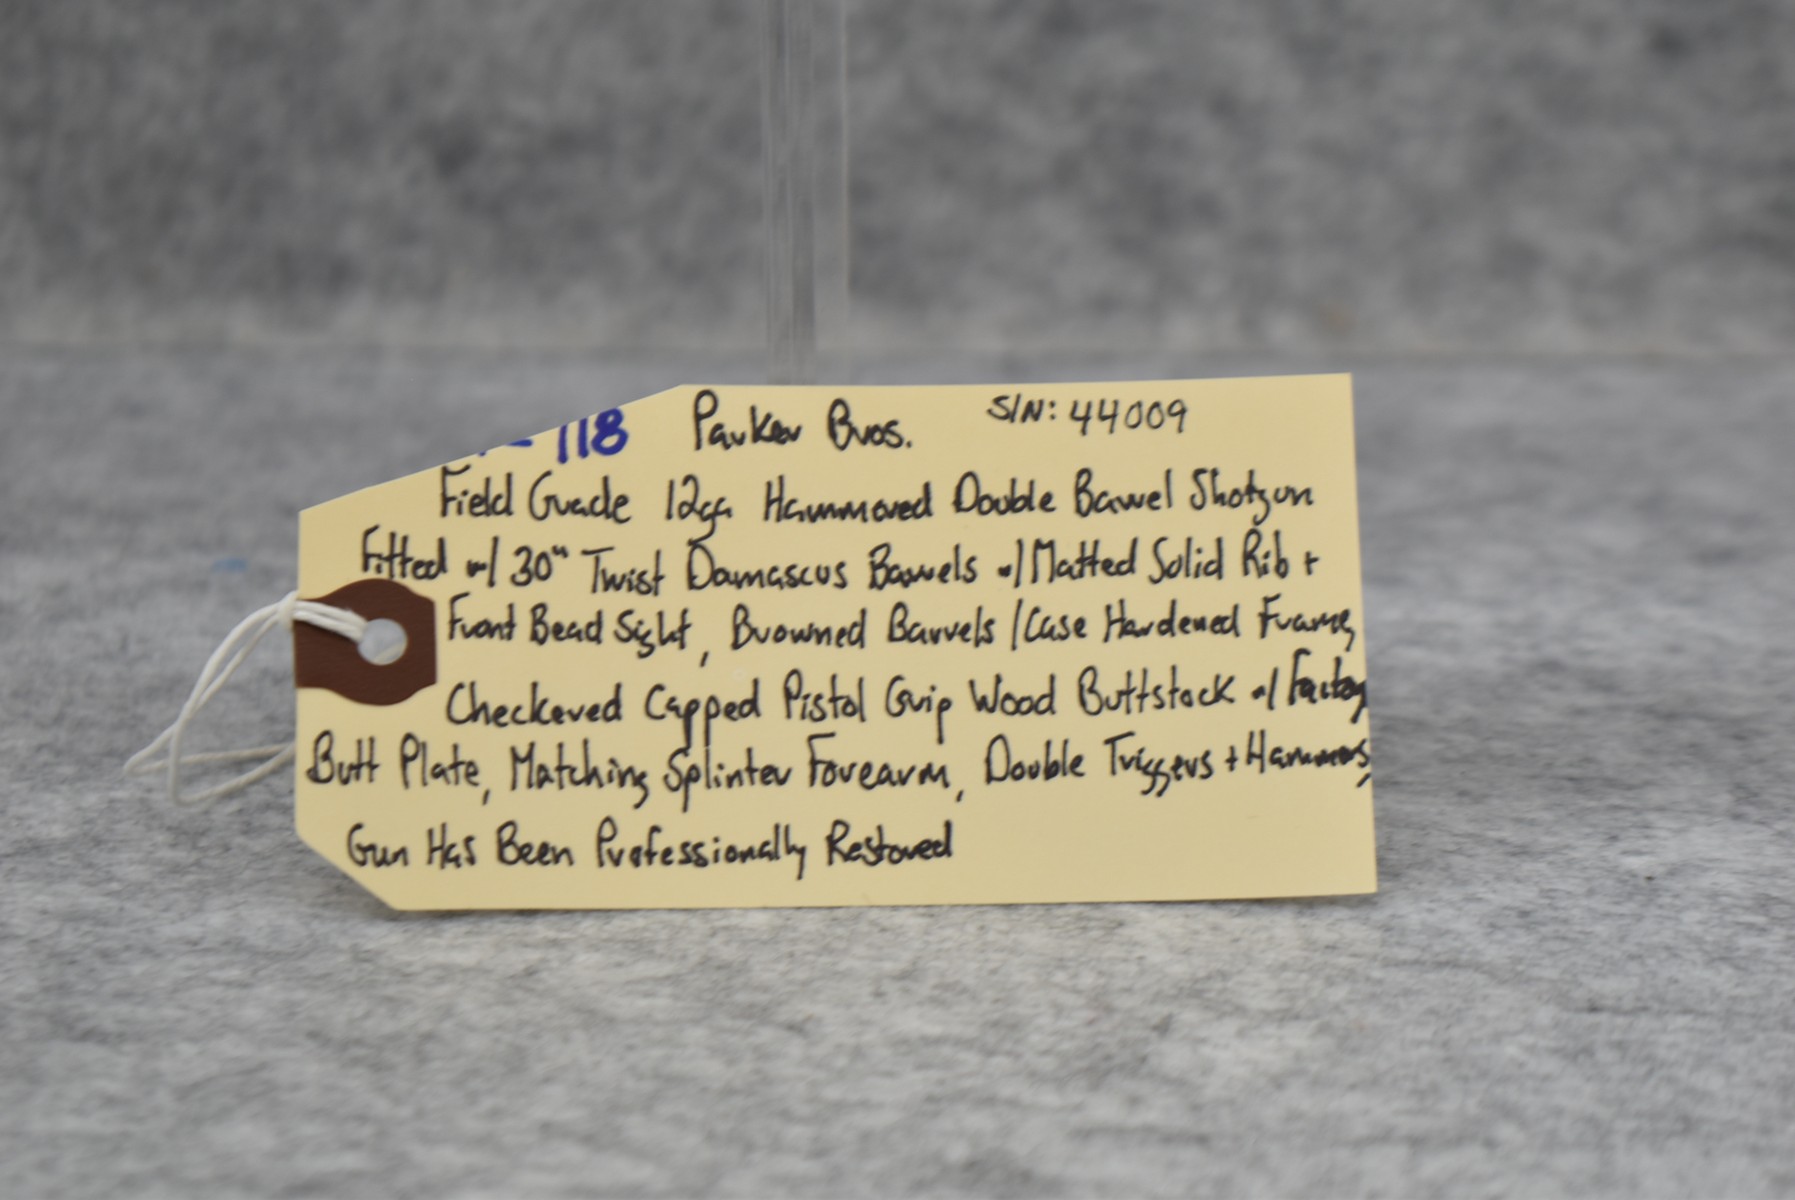 -118 Parker Bros. S/N: 44009
Field Grade 12ga Hammered Double Barrel Shotgun
Fitted w/ 30" Twist Damascus Barrels w/ Matted Solid Rib +
Front Bead Sight, Browned Barrels / Case Hardened Frame,
Checkered Capped Pistol Grip Wood Buttstock w/ Factory
Butt Plate, Matching Splinter Forearm, Double Triggers + Hammers,
Gun Has Been Professionally Restored